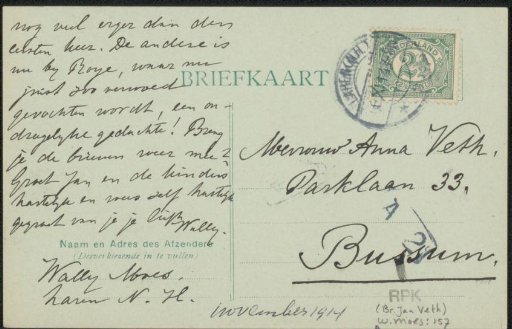 nog veel erger dan den
eersten keer. De andere is
nu by Roye, waar nu
juist zoo verwoed
gevochten wordt, een on-
dragelyke gedachte! Breng
je de brieven weer mee?
Groet Jan en de kinders
hartelijk en wees zelf hartelijk
gegroet van je je
Wally.
BRIEFKAART
NEDERLAND
2½
LAREN (N.H.)
Mevrouw Anna Veth.
Parklaan 33.
A
Bussum.
Naam en Adres des Afzenders
(Desverkiezende in te vullen)
Wally Moes.
Laren N. H.
november 1914
RPK
(Br. Jan Veth)
W. Moes: 157